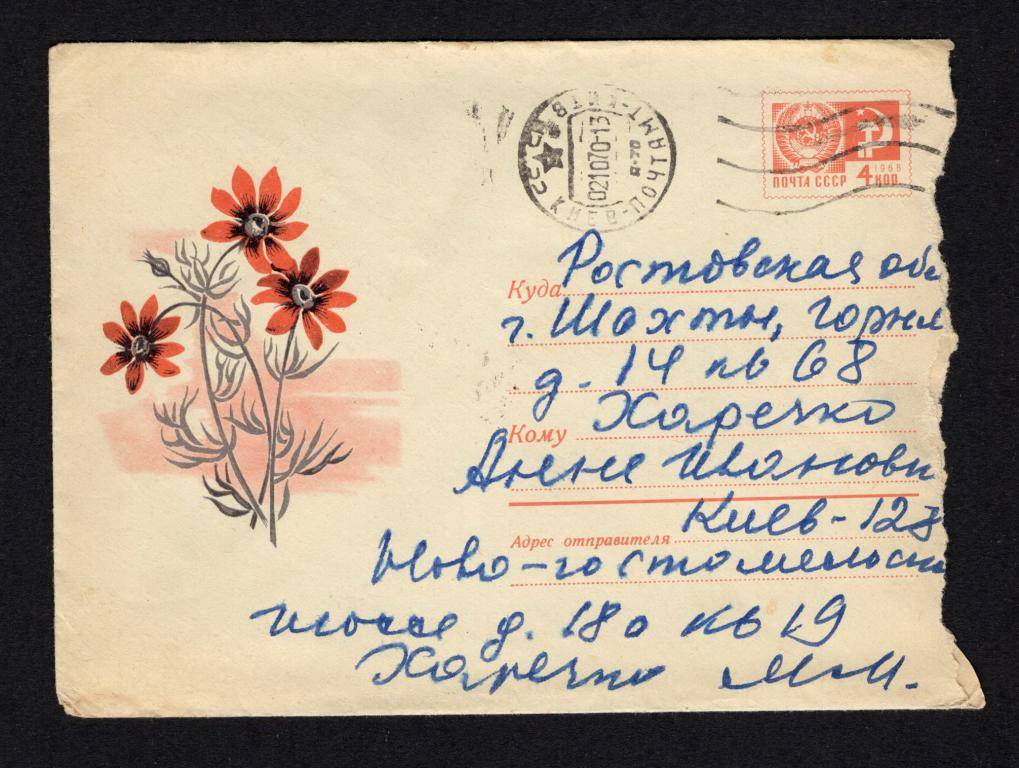 КИЕВ-ПОЧТАМТ
021070-13
1966
ПОЧТА СССР 4 КОП.
Куда Ростовская обл
г. Шахты, Горня
д. 14 кв 68
Кому Харечко
Анне Ивановн
Киев-128
Адрес отправителя
Ново-гостомельск
шоссе д. 18а кв 19
Харечко М.И.